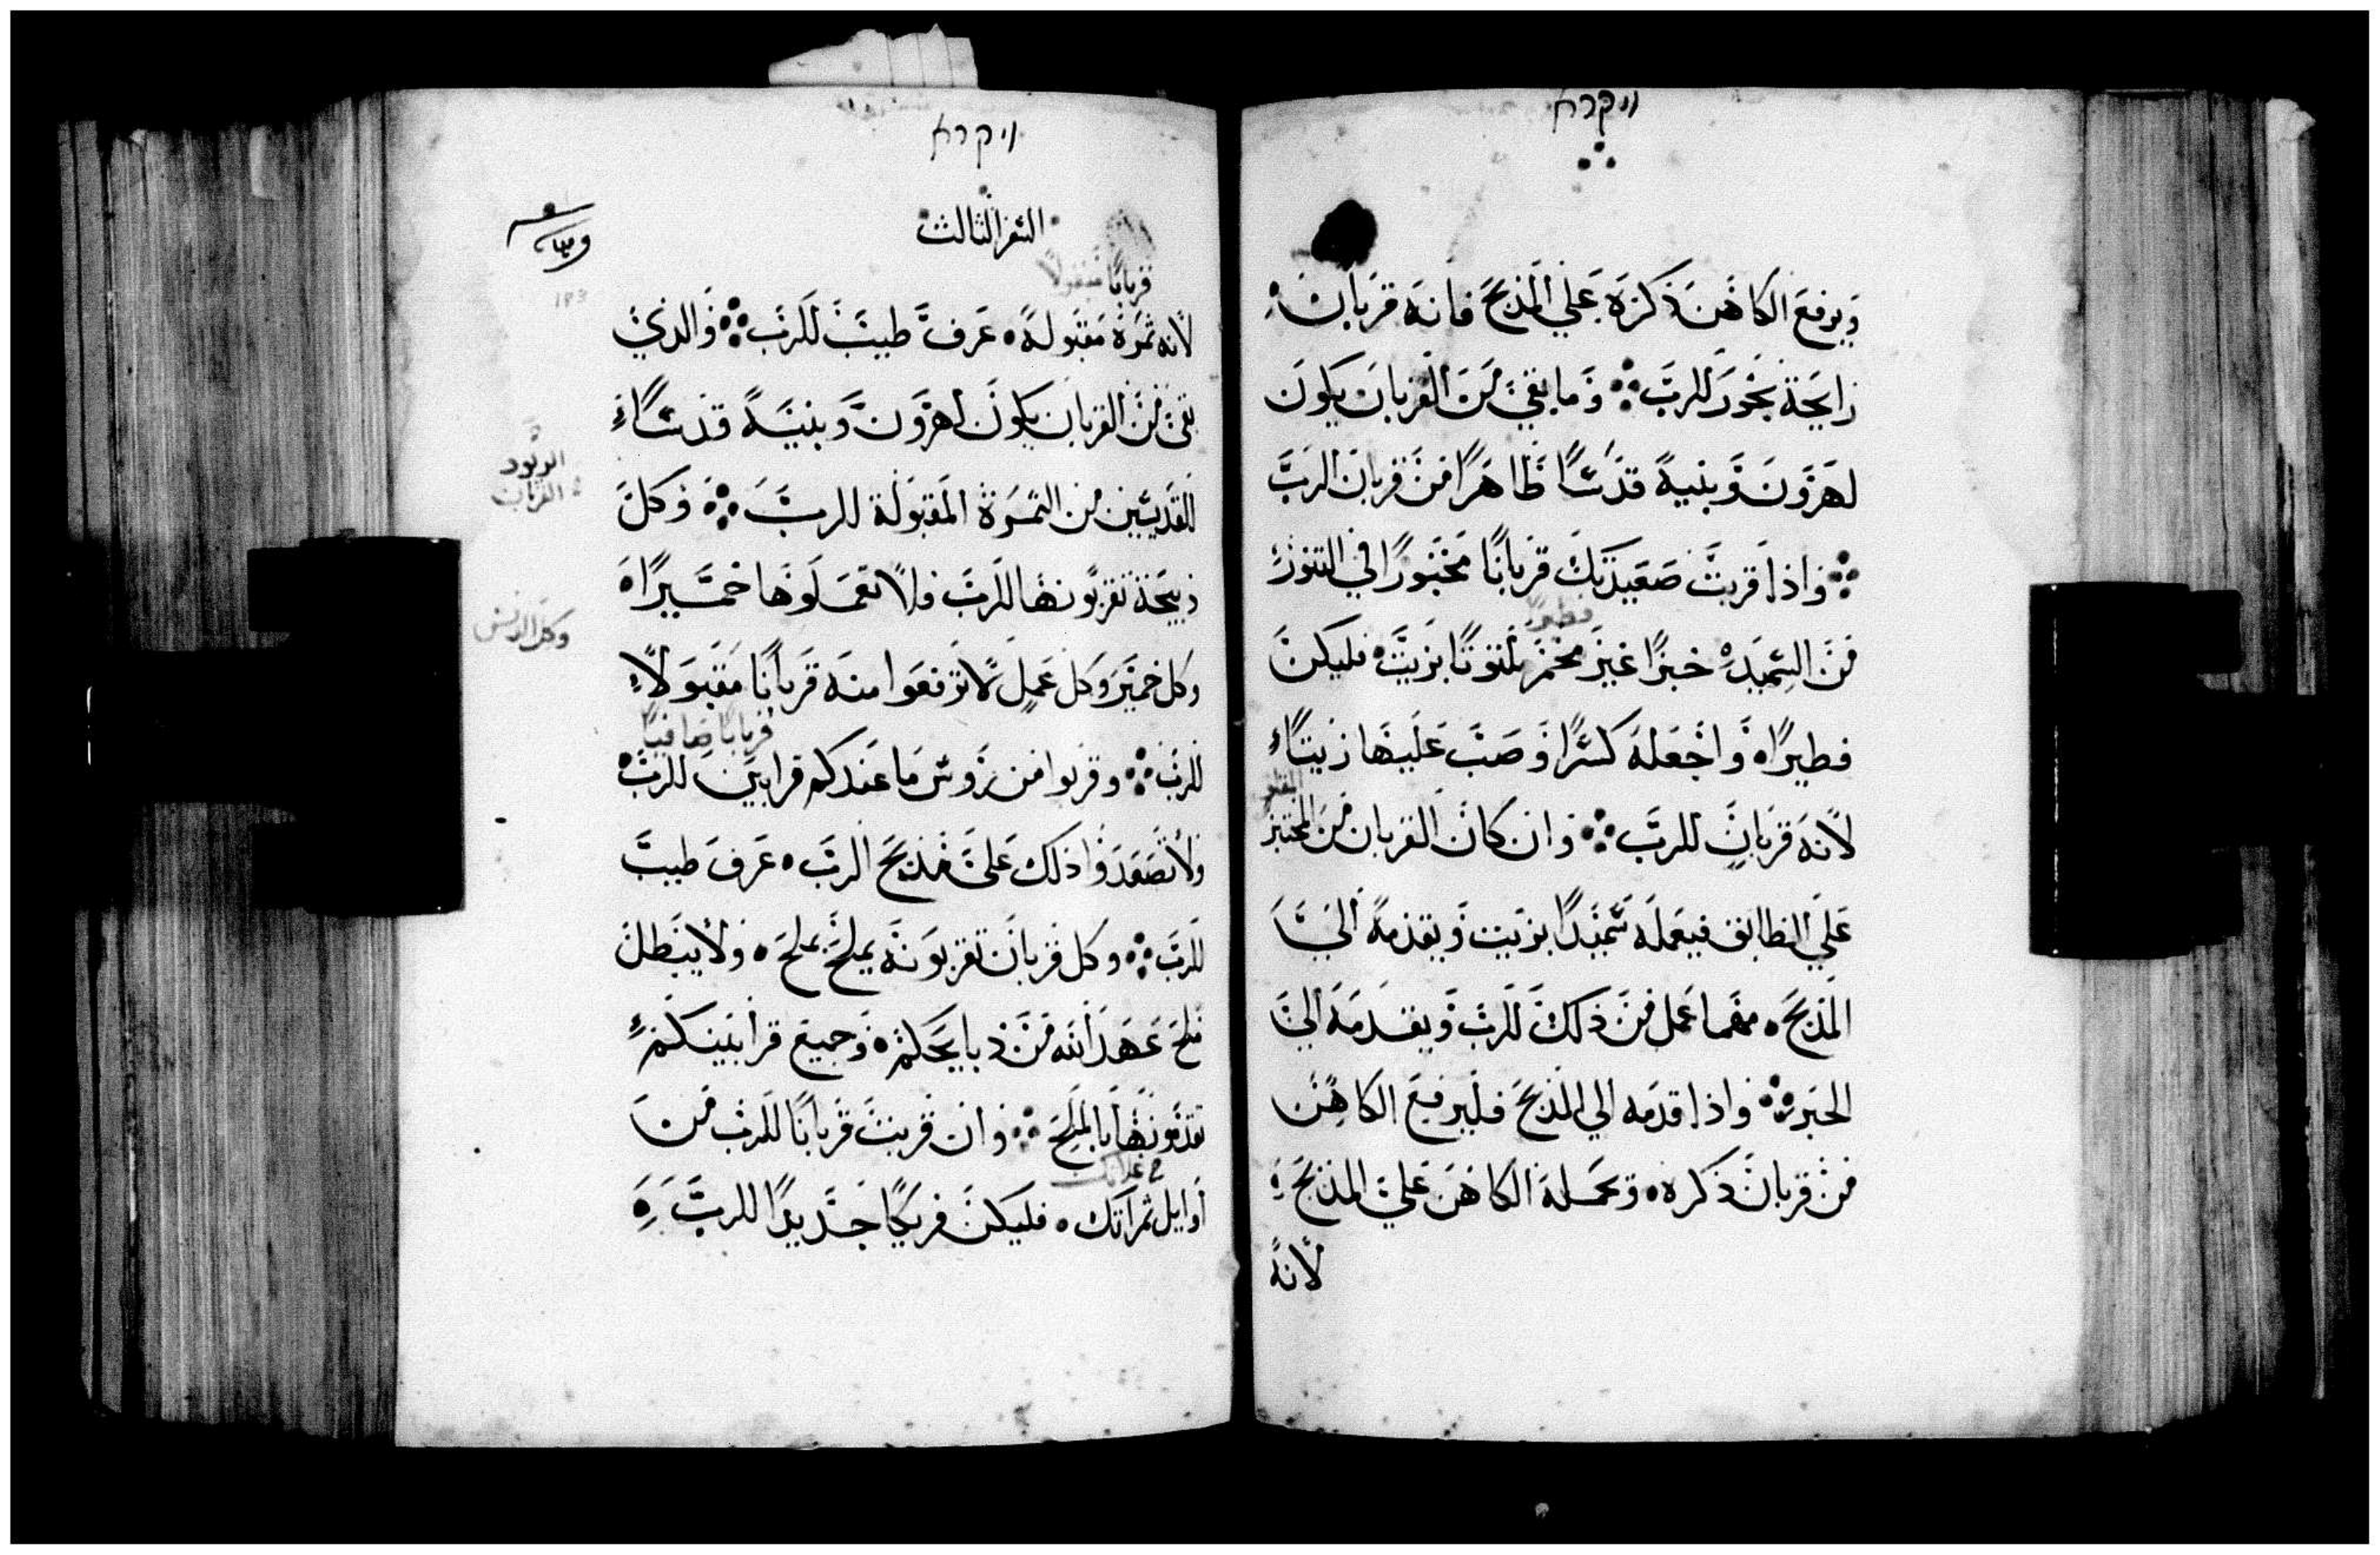 ויקרא
ويرفع الكاهن ذكره علي المذبح فانه قربان
رايحة بخور للرب وما بقي من القربان يكون
لهرون وبنيه قدسًا طاهرًا من قربان الرب
واذا قربت صعيدتك قربانًا مخبوزًا في التنور
فطيرًا
من السميد خبزًا غير مختمر ملتوتًا بزيت فليكن
فطيرًا واجعله كسرًا وصب عليها زيتًا
لانه قربان للرب وان كان القربان من المختبز
علي الطابق فيعمله سميدًا بزيت ويقدمه الي
المذبح مهما عمل من ذلك للرب ويقدمه الي
الحبر واذا قدمه الي المذبح فليرفع الكاهن
من قربان ذكره وتحمله الكاهن علي المذبح
لانه
ויקרא
السفر الثالث
183
قربانًا مقبولًا
لانه ثمرة مقبولة عرف طيب للرب والذي
بقي من القربان يكون لهرون وبنيه قدسًا
للقديسين من الثمرة المقبولة للرب وكل
القربان
ذبيحة تقربونها للرب فلا تعملوها خميرًا
وكل
وكل خمير وكل عمل لا ترفعوا منه قربانًا مقبولًا
قربانًا صافيًا
للرب وقربوا من روس ما عندكم قرابين للرب
ولا تصعدوا ذلك علي مذبح الرب عرف طيب
للرب وكل قربان تقربونه يملح بملح ولا يبطل
ملح عهد الله من ذبايحكم وجميع قرابينكم
تقدمونها بالملح وان قربت قربانًا للرب من
غلاتك
اوايل ثمراتك فليكن فريكًا جديدًا للرب